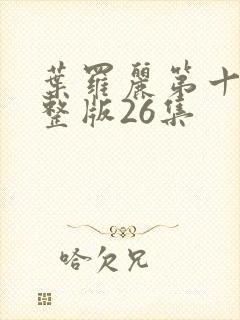 葉羅麗第十
整版26集
哈欠兄